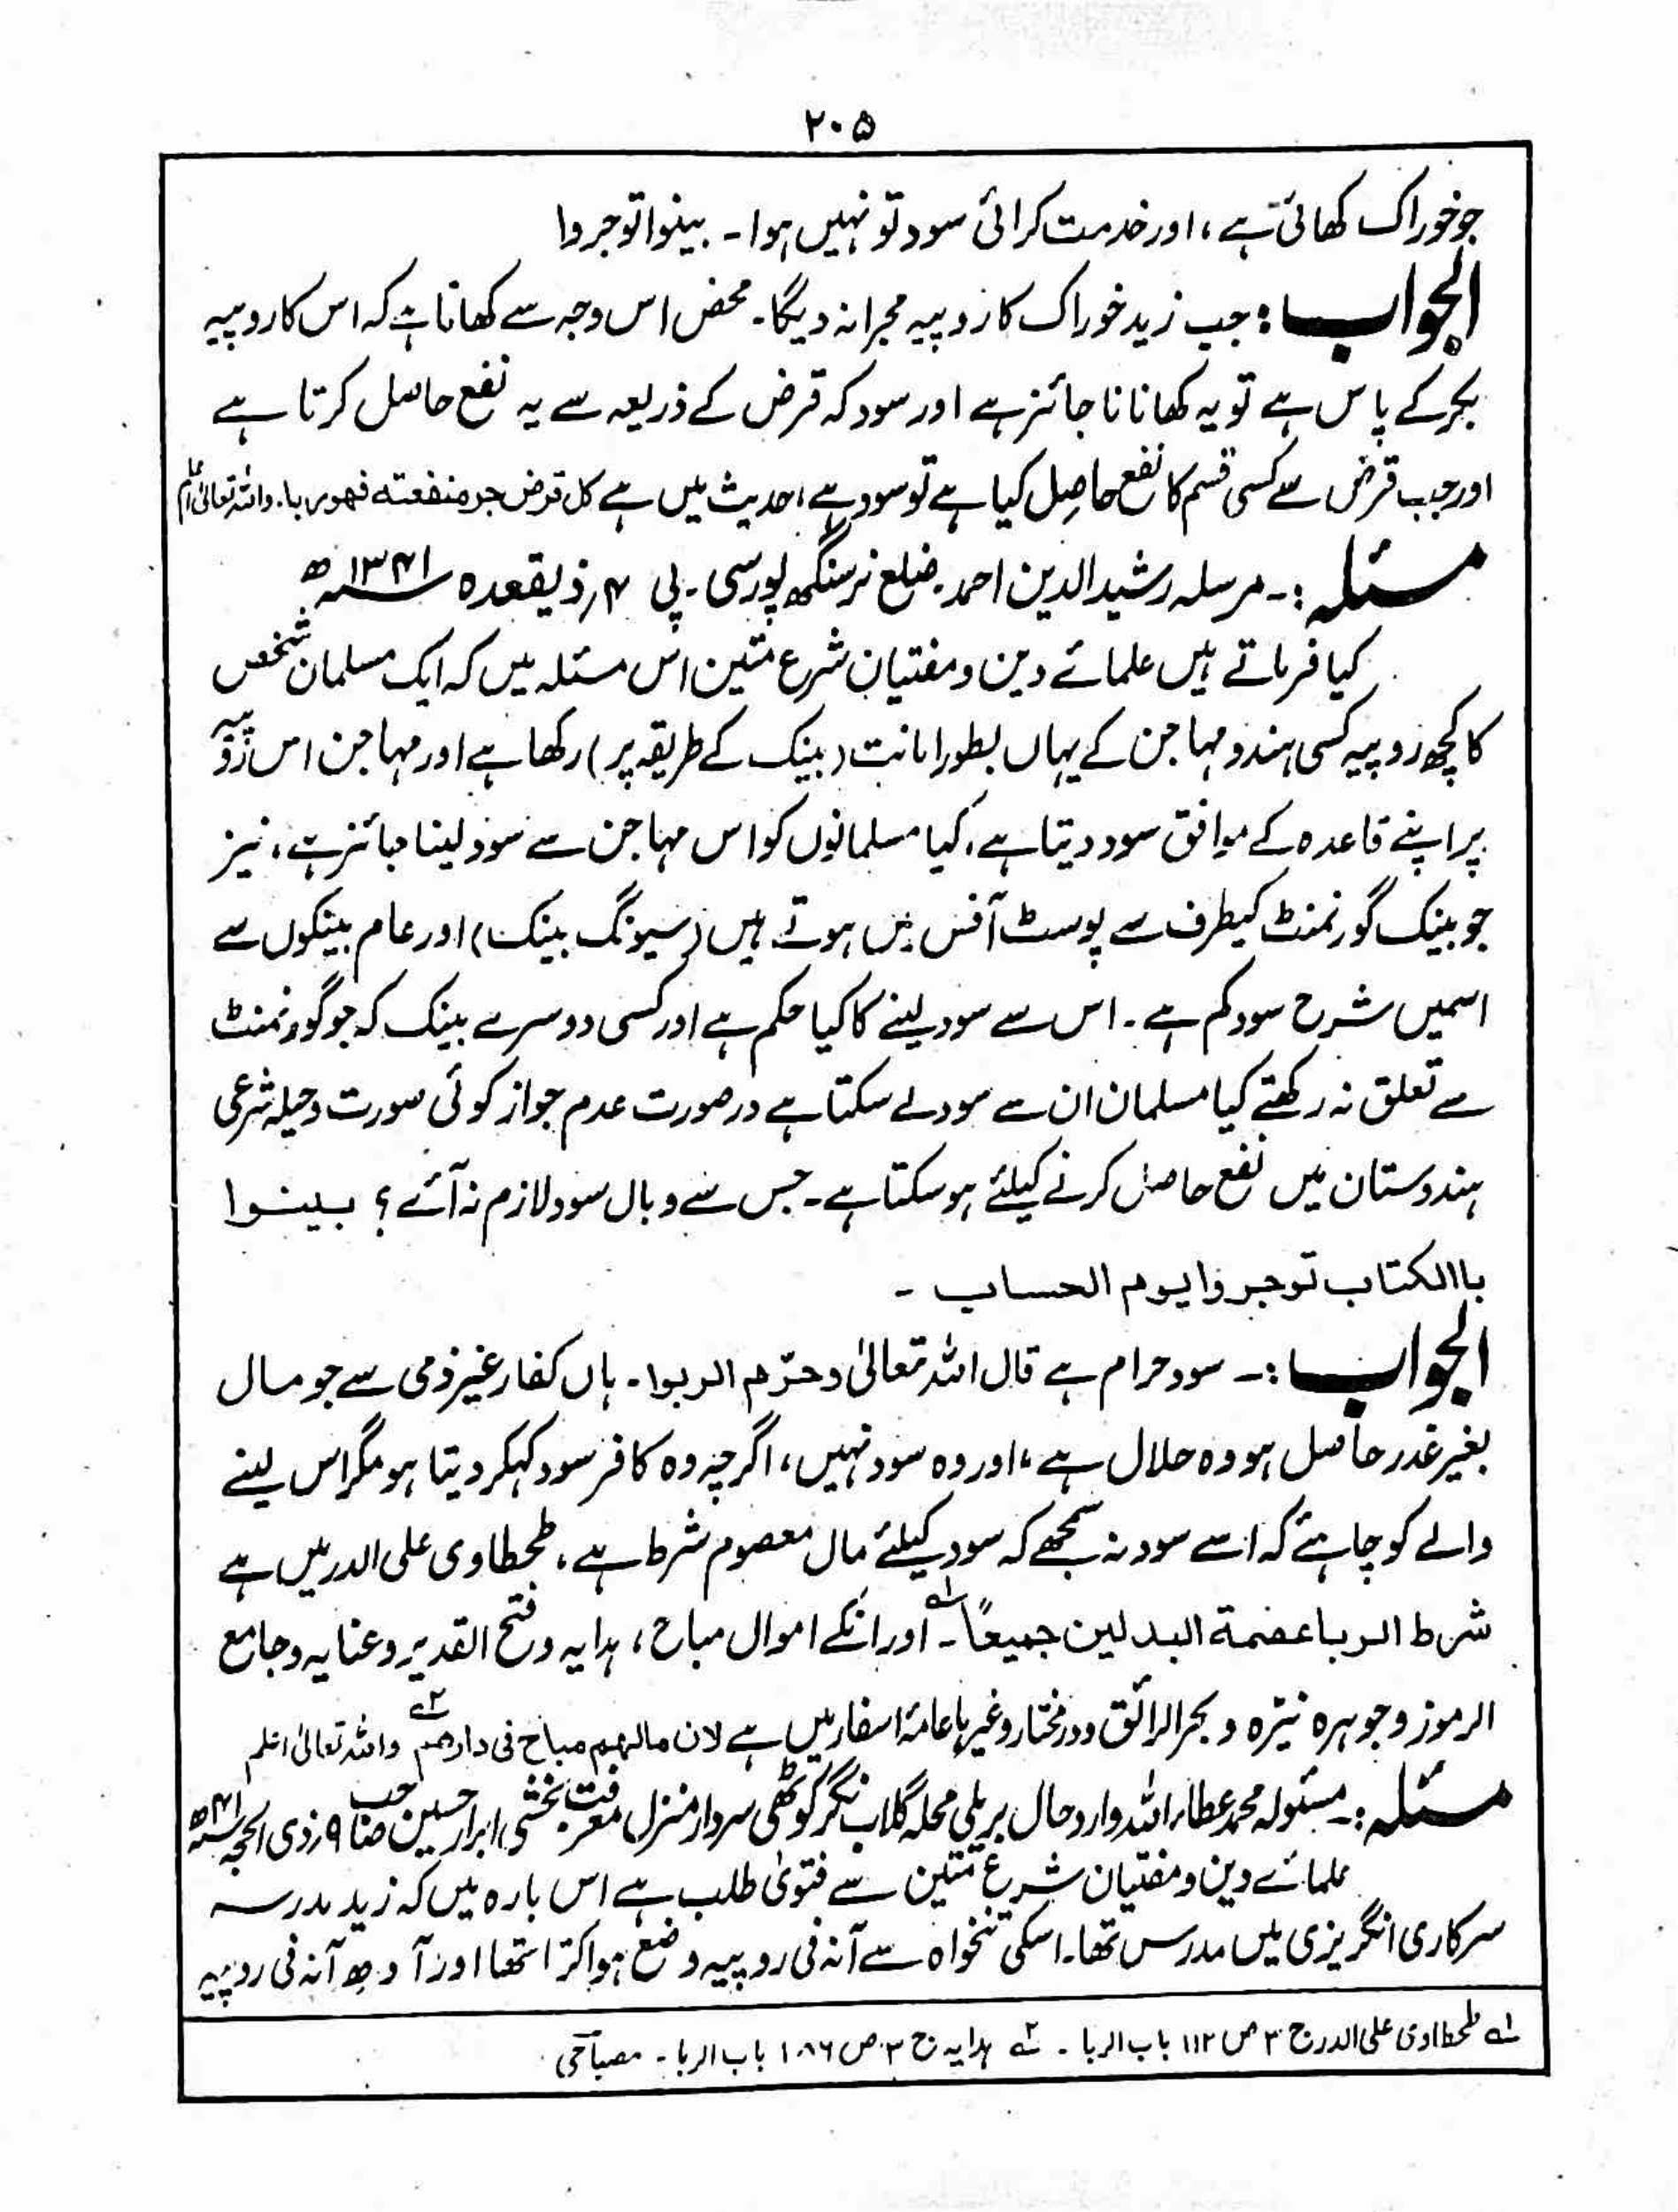 ۲۰۵
جو خوراک کھائی ہے، اور خدمت کرائی سود تو نہیں ہوا۔ بینوا توجروا
الجواب : جب زید خوراک کا روپیہ مجرا نہ دیگا۔ محض اس وجہ سے کھاتا ہے کہ اس کا روپیہ
بکر کے پاس ہے تو یہ کھانا ناجائز ہے اور سود کہ قرض کے ذریعہ سے یہ نفع حاصل کرتا ہے
اور جب قرض سے کسی قسم کا نفع حاصل کیا ہے تو سود ہے، حدیث میں ہے کل قرض جر منفعتہ فھو ربا۔ واللہ تعالیٰ اعلم
مسئلہ :۔ مرسلہ رشید الدین احمد۔ ضلع نرسنگھپور سی۔ پی ۴؍ ذیقعدہ سنہ ۱۳۴۱ھ
کیا فرماتے ہیں علمائے دین و مفتیان شرع متین اس مسئلہ میں کہ ایک مسلمان شخص
کا کچھ روپیہ کسی ہندو مہاجن کے یہاں بطور امانت (بینک کے طریقہ پر) رکھا ہے اور مہاجن اس روپیہ
پر اپنے قاعدہ کے موافق سود دیتا ہے، کیا مسلمانوں کو اس مہاجن سے سود لینا جائز ہے، نیز
جو بینک گورنمنٹ کیطرف سے پوسٹ آفس میں ہوتے ہیں (سیونگ بینک) اور عام بینکوں سے
اسمیں شرح سود کم ہے۔ اس سے سود لینے کا کیا حکم ہے اور کسی دوسرے بینک کہ جو گورنمنٹ
سے تعلق نہ رکھتے کیا مسلمان ان سے سود لے سکتا ہے در صورت عدم جواز کوئی صورت و حیلہ شرعی
ہندوستان میں نفع حاصل کرنے کیلئے ہو سکتا ہے۔ جس سے وبال سود لازم نہ آئے؟ بینوا
باالکتاب توجروا یوم الحساب ۔
الجواب :۔ سود حرام ہے قال اللہ تعالیٰ وحرّم الربوا۔ ہاں کفار غیر ذمی سے جو مال
بغیر غدر حاصل ہو وہ حلال ہے، اور وہ سود نہیں، اگرچہ وہ کافر سود کہکر دیتا ہو مگر اس لینے
والے کو چاہئے کہ اسے سود نہ سمجھے کہ سود کیلئے مال معصوم شرط ہے، طحطاوی علی الدر میں ہے
شرط الربا عصمة البدلین جمیعًا۔ ؎۱ اور انکے اموال مباح، ہدایہ و فتح القدیر و عنایہ و جامع
الرموز و جوہرہ نیّرہ و بحر الرائق و در مختار وغیرہا عامۂ اسفار میں ہے لان مالہم مباح فی دارھم ؎۲ واللہ تعالیٰ اعلم
مسئلہ :۔ مسئولہ محمد عطاء اللہ وارد حال بریلی محلہ گلاب نگر کوٹھی سردار منزل معرفت بخشی ابرار حسین صاحب ۹؍ ذی الحجہ سنہ ۴۱ھ
علمائے دین و مفتیان شرع متین سے فتویٰ طلب ہے اس بارہ میں کہ زید مدرسہ
سرکاری انگریزی میں مدرس تھا۔ اسکی تنخواہ سے آنہ فی روپیہ وضع ہوا کرتا تھا اور آدھ آنہ فی روپیہ
؎۱ طحطاوی علی الدر ج ۳ ص ۱۱۲ باب الربا۔ ؎۲ ہدایہ ج ۳ ص ۸۶ باب الربا۔ مصباحی